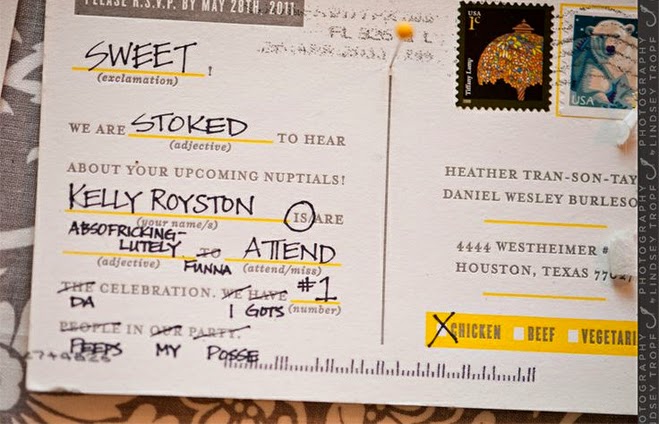 PLEASE R.S.V.P. BY MAY 28TH, 2011
SWEET!
(exclamation)
WE ARE STOKED TO HEAR
(adjective)
ABOUT YOUR UPCOMING NUPTIALS!
KELLY ROYSTON IS/ARE
(your name/s)
ABSOFRICKING-
LUTELY TO ATTEND
(adjective) FUNNA (attend/miss)
THE CELEBRATION. WE HAVE #1
DA I GOTS (number)
PEOPLE IN OUR PARTY.
PEEPS MY POSSE
1¢
Tiffany Lamp
USA
USA
HEATHER TRAN-SON-TAY
DANIEL WESLEY BURLESO
4444 WESTHEIMER #
HOUSTON, TEXAS 77027
X CHICKEN BEEF VEGETARI
PHOTOGRAPHY by LINDSEY TROPF
PHOTOGRAPHY by LINDSEY TROPF